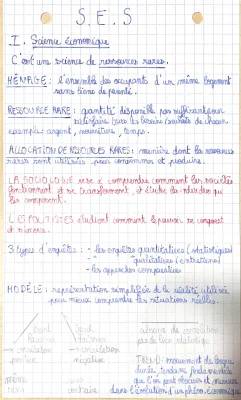 S.E.S
I. Science économique
C'est une science de ressources rares.
MÉNAGE: l'ensemble des occupants d'un même logement
sans liens de parenté.
RESSOURCE RARE: quantité disponible pas suffisante pour
satisfaire tous les besoins
exemple: argent, nourriture, temps.
ALLOCATION DE RESSOURCES RARES: manière dont les ressources
rares sont utilisées pour consommer et produire.
LA SOCIOLOGIE vise à comprendre comment les sociétés
fonctionnent et se transforment, et étudie les
les composent.
LES POLITISTES étudient comment le pouvoir se conquiert
et s'exerce.
3 types d'enquêtes: - les enquêtes quantitatives (statistiques)
- " " qualitatives (entretiens)
- les approches comparatives
MODÈLE: représentation simplifiée de la réalité utilisée
pour mieux comprendre les situations réelles.
corrélation
corrélation
positive
négative
même
contraire
de corrélation
pas de lien statistique
TREND: mouvement de longue
durée, tendance fondamentale
que l'on peut observer et mesurer
dans l'évolution d'un phénomène économique